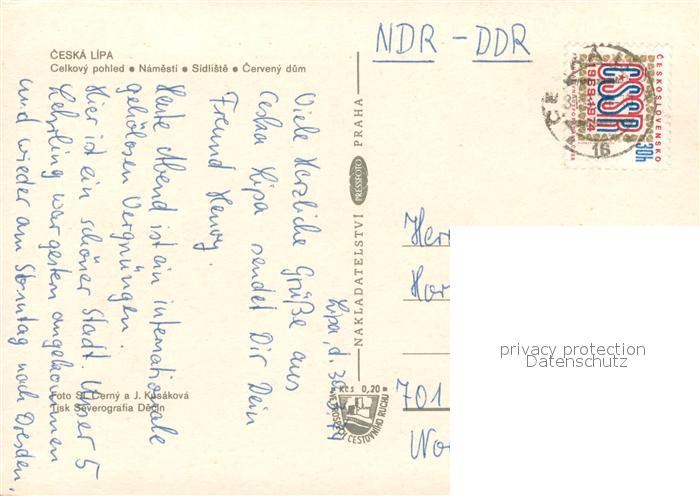 ČESKÁ LÍPA
Celkový pohled ● Náměstí ● Sídliště ● Červený dům
Lipa, d.
Viele Herzliche Grüße aus
Ceska Lipa sendet Dir Dein
Freund Henry.
Heute Abend ist ein internationale
gehölosen Vergnüngen.
Hier ist ein schöner Stadt. Unser 5
Lehrling war gestern angekommen
und wieder am Sonntag nach Dresden.
Foto St. Černý a J. Kusáková
Tisk Severografia Děčín
NAKLADATELSTVÍ PRESSFOTO PRAHA
Kčs 0,20
CESTOVNÍHO RUCHU
NDR – DDR
ČESKOSLOVENSKO
ČSSR
1969·1974
30h
16
Her
Hor
701
privacy protection
Datenschutz